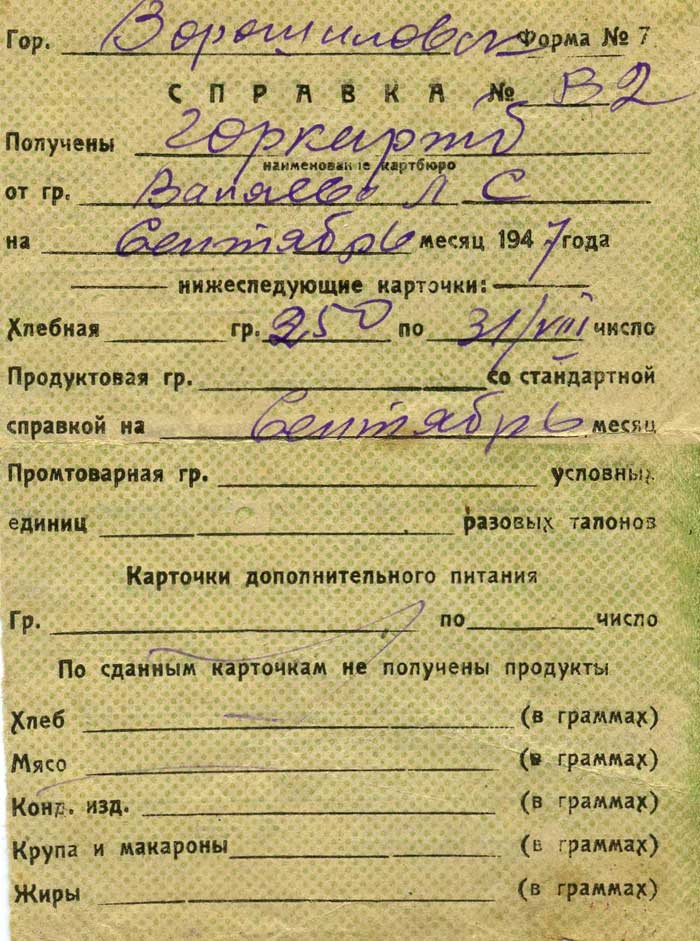 Гор. Ворошиловск Форма № 7
СПРАВКА № В2
Получены Горкартб
наименование картбюро
от гр. Л С
на Сентябрь месяц 1947 года
нижеследующие карточки:
Хлебная гр. 250 по 31/VIII число
Продуктовая гр. со стандартной
справкой на Сентябрь месяц
Промтоварная гр. условных
единиц разовых талонов
Карточки дополнительного питания
Гр. по число
По сданным карточкам не получены продукты
Хлеб (в граммах)
Мясо (в граммах)
Конд. изд. (в граммах)
Крупа и макароны (в граммах)
Жиры (в граммах)